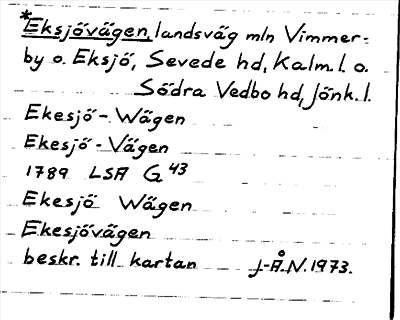 *Eksjövägen, landsväg mln Vimmer-
by o. Eksjö, Sevede hd, Kalm. l. o.
Södra Vedbo hd, Jönk. l.
Ekesjö - Wägen
Ekesjö - Vägen
1789 LSA G 43
Ekesjö Wägen
Ekesjövägen
beskr. till kartan J-Å.N. 1973.